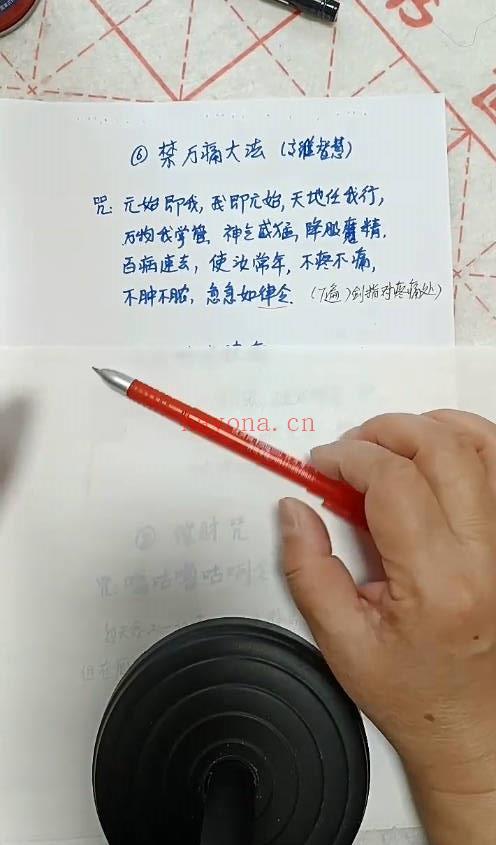 ⑥ 禁万痛大法 (高维智慧)
咒: 元始即我, 我即元始, 天地任我行,
万物我掌管, 神气威猛, 降服魔精.
百病速去, 使汝常年, 不疼不痛,
不肿不脓, 急急如律令. (7遍)剑指对疼痛处)
kayona.cn
催财咒
咒:噜咕噜咕